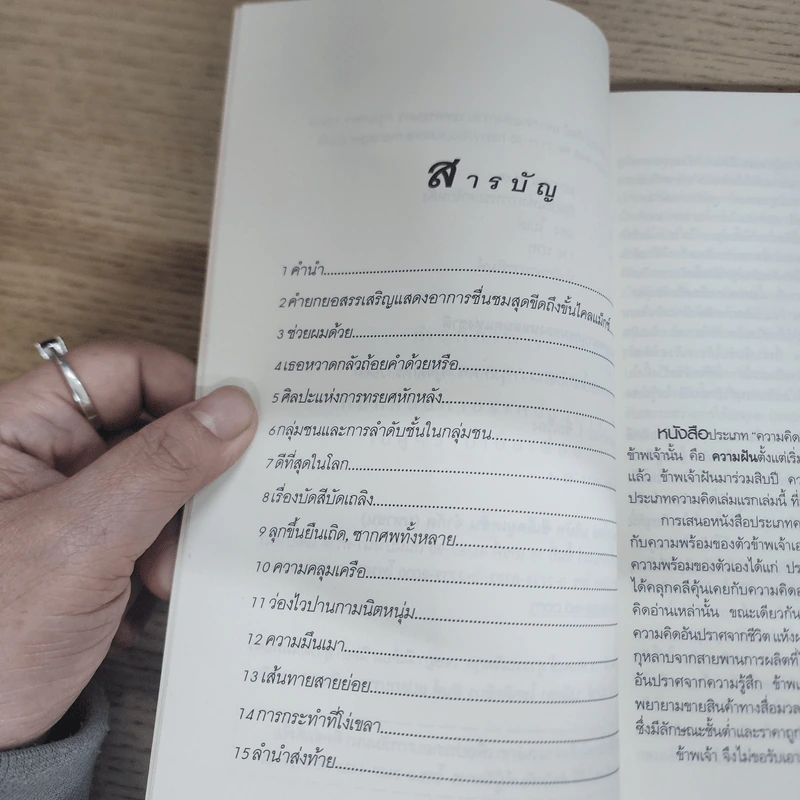 สารบัญ
1 คำนำ
2 คำยกยอสรรเสริญแสดงอาการชื่นชมสุดขีดถึงขั้นไคลแม็กซ์
3 ช่วยผมด้วย
4 เธอหวาดกลัวถ้อยคำด้วยหรือ
5 ศิลปะแห่งการทรยศหักหลัง
6 กลุ่มชนและการลำดับชั้นในกลุ่มชน
7 ดีที่สุดในโลก
8 เรื่องบัดสีบัดเถลิง
9 ลุกขึ้นยืนเถิด, ซากศพทั้งหลาย
10 ความคลุมเครือ
11 ว่องไวปานกามนิตหนุ่ม
12 ความมึนเมา
13 เส้นทายสายย่อย
14 การกระทำที่โง่เขลา
15 ลำนำส่งท้าย
หนังสือประเภท "ความคิด
ข้าพเจ้านั้น คือ ความฝันตั้งแต่เริ่ม
แล้ว ข้าพเจ้าฝันมาร่วมสิบปี
ประเภทความคิดเล่มแรกเล่มนี้ ที่
การเสนอหนังสือประเภทค
กับความพร้อมของตัวข้าพเจ้าเอ
ความพร้อมของตัวเองได้แก่
ได้คลุกคลีคุ้นเคยกับความคิด
คิดอ่านเหล่านั้น ขณะเดียวกัน
ความคิดอันปราศจากชีวิต
กุหลาบจากสายพานการผลิตที่
อันปราศจากความรู้สึก
พยายามขายสินค้าทางสื่อมวล
ซึ่งมีลักษณะชั้นต่ำและราคาถูก
ข้าพเจ้า จึงไม่ขอรับเอา